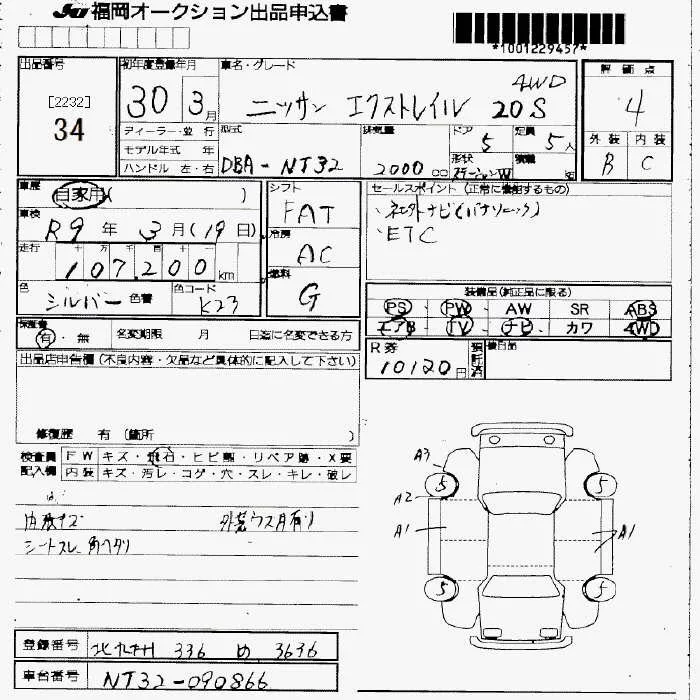 JU 福岡オークション出品申込書
*1001229457*
出品番号
[2232]
34
初年度登録年月
30 3月
車名・グレード
4WD
ニッサン エクストレイル 20S
評価点
4
外装 内装
B C
ディーラー・並行
モデル年式 年
ハンドル 左・右
型式
DBA-NT32
排気量
2000 cc
ドア
5
形状
ステーションW
定員
5人
積載
kg
車歴
自家用( )
車検
R9年 3月(19日)
走行
107,200 km
色
シルバー 色替
色コード
K23
シフト
FAT
冷房
AC
燃料
G
セールスポイント (正常に機能するもの)
・ETC
装備品(純正品に限る)
PS・PW・AW SR ABS
エアB・TV・ナビ・カワ 4WD
保証書
有・無 名変期限 月 日迄に名変できる方
R券
10120円
預託済
後日品
出品店申告欄(不良内容・欠品など具体的に記入して下さい)
修復歴 有 (箇所 )
検査員記入欄
FW キズ・飛石・ヒビ割・リペア跡・X要
内装 キズ・汚レ・コゲ・穴・スレ・キレ・破レ
内張キズ 外装ウス月有り
シートスレ
A3
5 5
A2
A1 A1
5 5
登録番号 北九州 336 め 3636
車台番号 NT32-090866